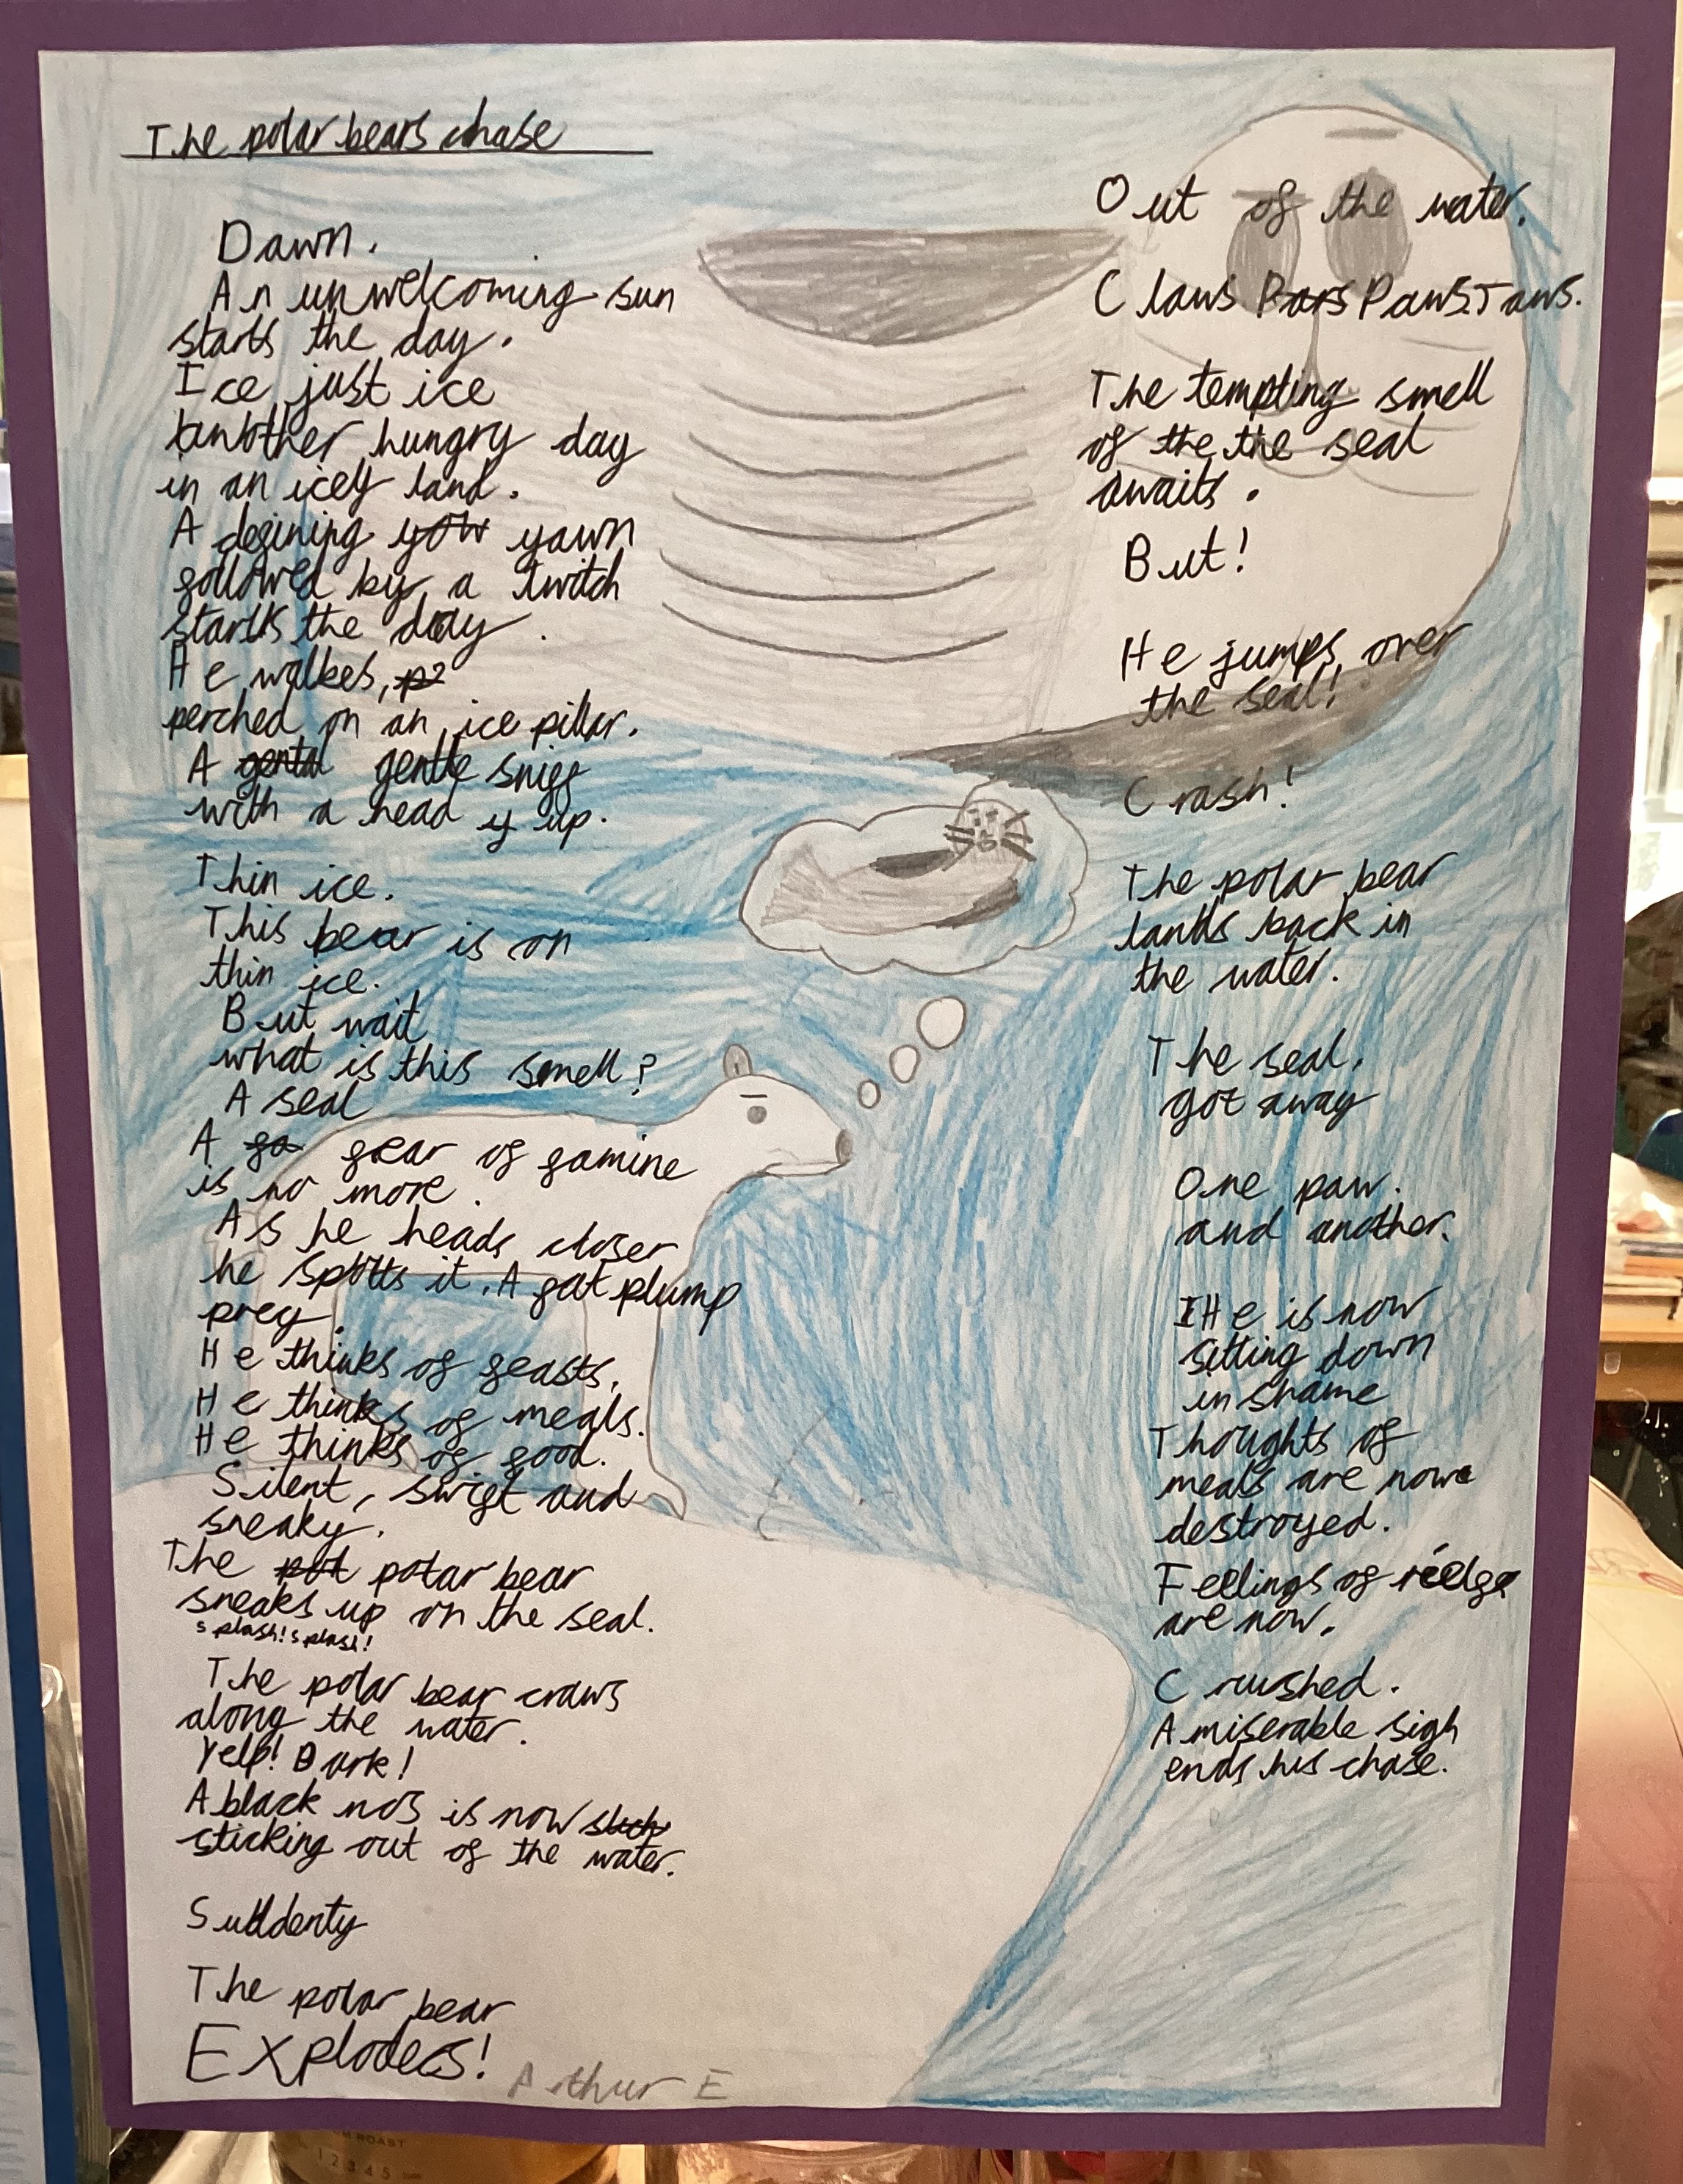 The polar bears chase
Dawn.
An unwelcoming sun
starts the day.
Ice just ice
another hungry day
in an icely land.
A defining yow yawn
followed by a twitch
starts the day.
He walkes,
perched on an ice pillar.
A gental gentle sniff
with a head y up.
Thin ice.
This bear is on
thin ice.
But wait
what is this smell?
A seal
A fa fear of famine
is no more.
As he heads closer
he spotts it. A fat plump
prey.
He thinks of feasts.
He thinks of meals.
He thinks of food.
Silent, swift and
sneaky.
The pol polar bear
sneaks up on the seal.
splash! splash!
The polar bear craws
along the water.
Yelp! Bark!
A black nos is now stich
sticking out of the water.
Suddenly
The polar bear
Explodes!
Arthur E
Out of the water.
Claws Pars Paws Jaws.
The tempting smell
of the the seal
awaits.
But!
He jumps over
the seal!
Crash!
The polar bear
lands back in
the water.
The seal.
got away
One paw.
and another.
He is now
sitting down
in shame
Thoughts of
meals are now
destroyed.
Feelings of
are now.
Crushed.
A miserable sigh
ends his chase.
M ROAST
1 2 3 4 5